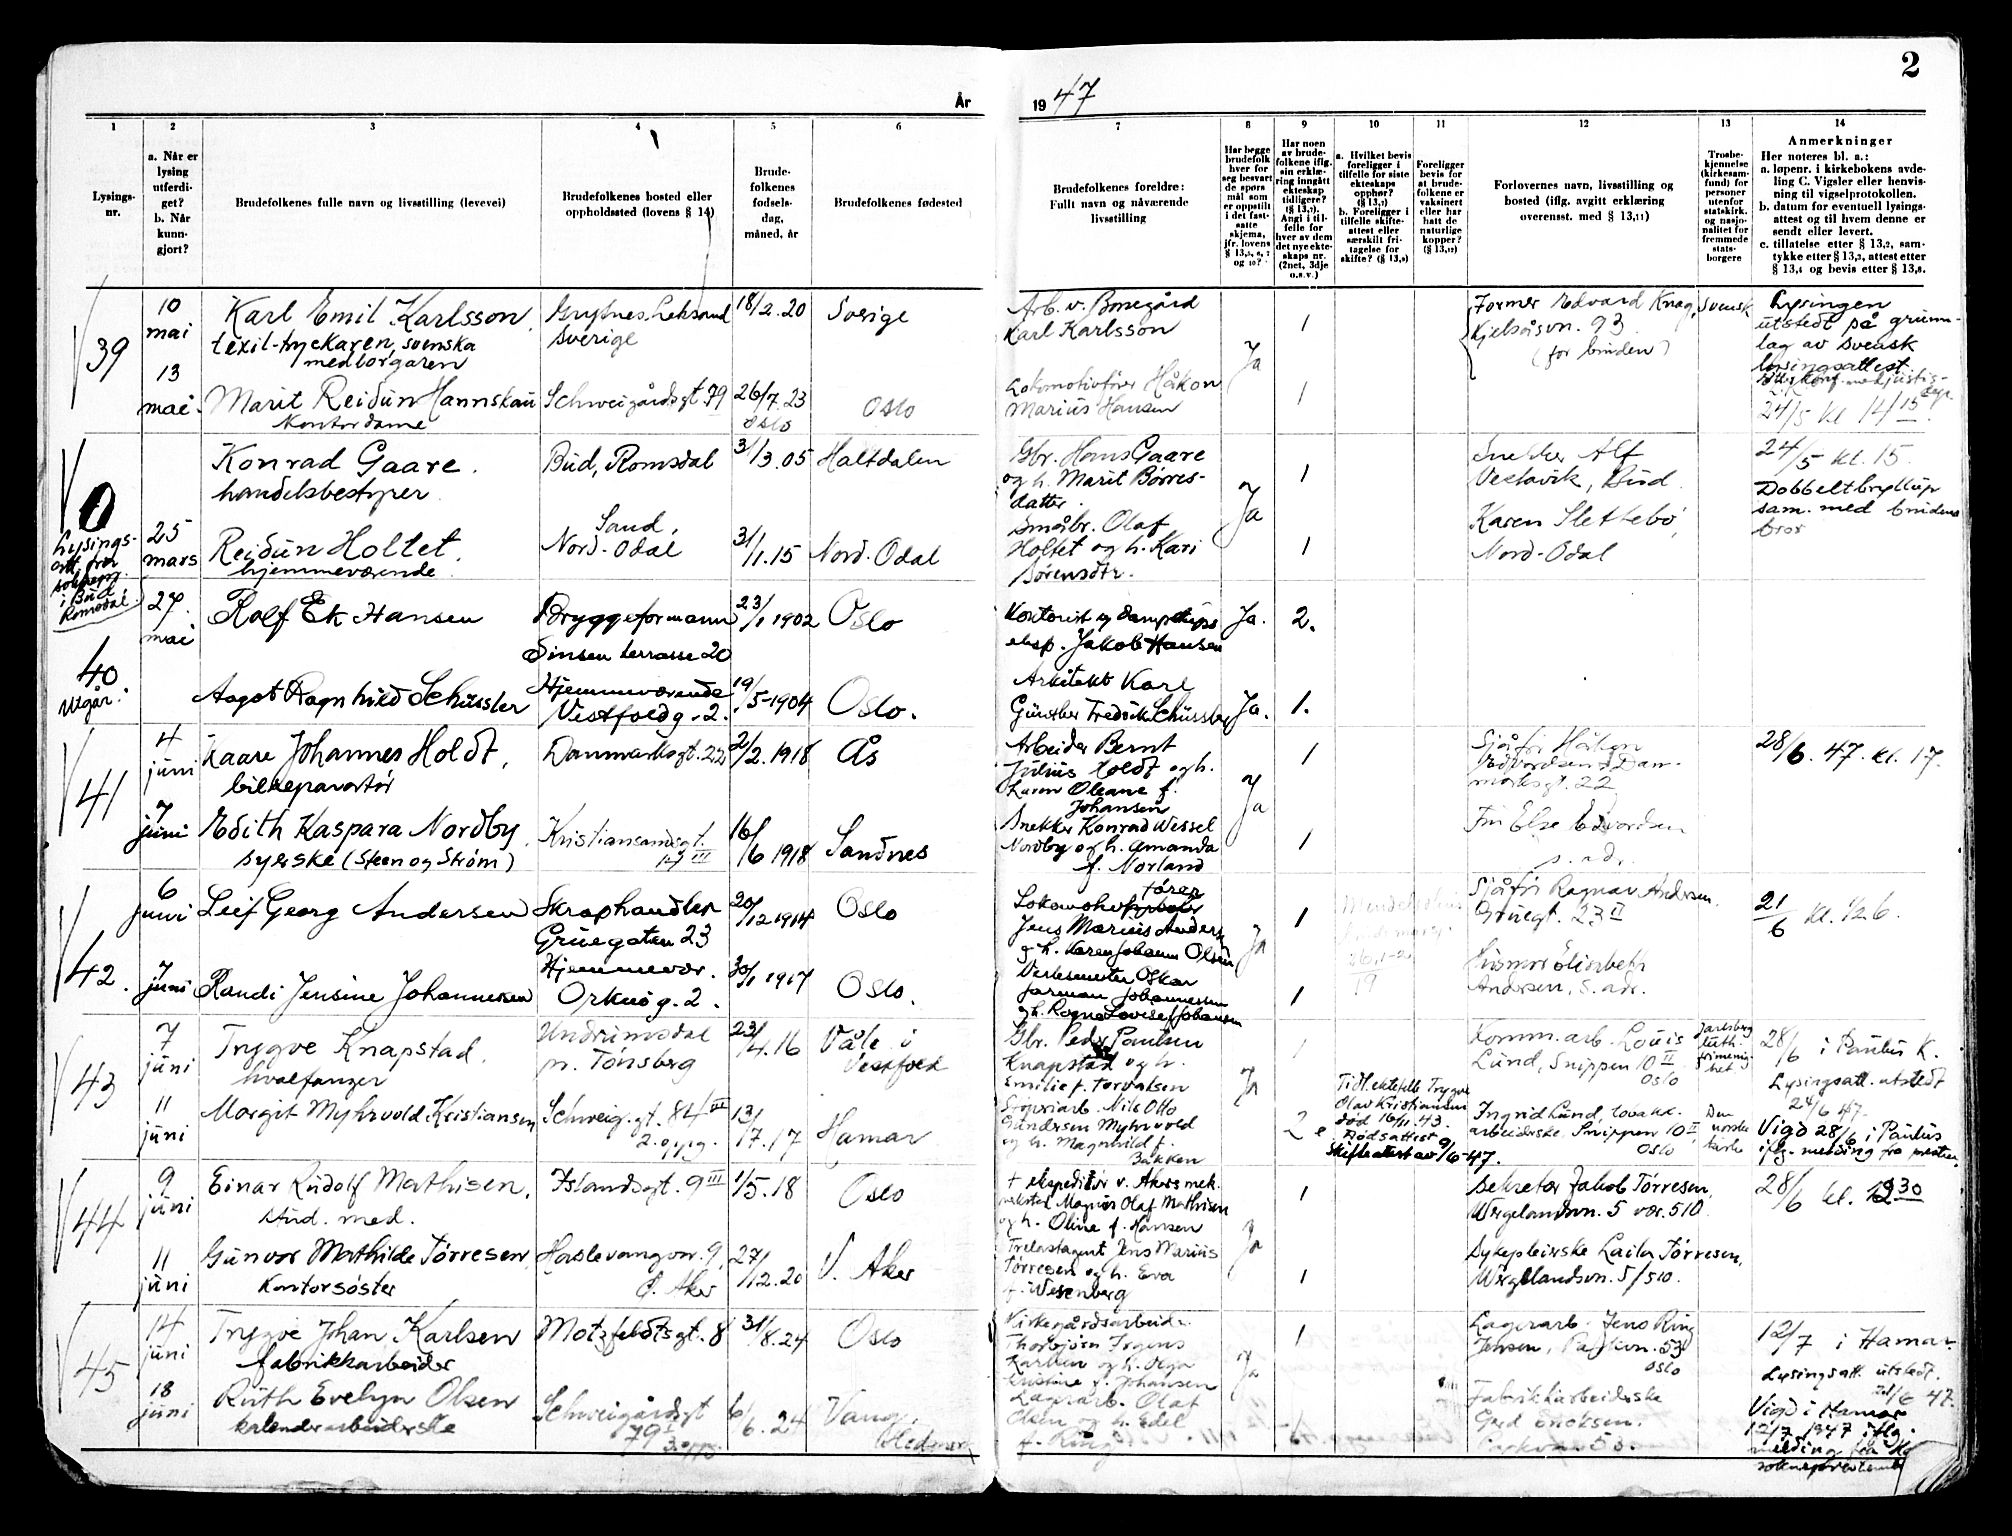 2
År
19 47
1
2
3
4
5
6
7
8
9
10
11
12
13
14
Lysings-
nr.
a. Når er
lysing
utferdi-
get?
b. Når
kunn-
gjort?
Brudefolkenes fulle navn og livsstilling (levevei)
Brudefolkenes bosted eller
oppholdssted (lovens § 14)
Brude-
folkenes
fødsels-
dag,
måned, år
Brudefolkenes fødested
Brudefolkenes foreldre:
Fullt navn og nåværende
livsstilling
Har begge
brudefolk
hver for
seg besvart
de spørs
mål som
er oppstilt
i det fast-
satte
skjema,
jfr. lovens
og 10?
Har noen
av brude-
folkene iflg.
sin erklæ-
ring inngått
ekteskap
tidligere?
Angi i til-
felle for
hver av dem
det nye ekte-
skaps nr.
(2net, 3dje
o.s.v.)
a. Hvilket bevis
foreligger i
tilfelle for siste
ekteskaps
opphør?
b. Foreligger i
tilfelle skifte-
attest eller
særskilt fri-
tagelse for
skifte? (§ 13,9)
Foreligger
bevis for
at brude-
folkene er
vaksinert
eller har
hatt de
naturlige
kopper?
Forlovernes navn, livsstilling og
bosted (iflg. avgitt erklæring
overensst. med § 13,11)
Trosbe-
kjennelse
(kirkesam-
fund) for
personer
utenfor
statskirk.
og nasjo-
nalitet for
fremmede
stats-
borgere
Anmerkninger
Her noteres bl. a.:
a. løpenr. i kirkebokens avde-
ling C. Vigsler eller henvis-
ning til vigselprotokollen.
b. datum for eventuell lysings-
attest og til hvem denne er
sendt eller levert.
c. tillatelse etter § 13,2, sam-
tykke etter § 13,3, attest etter
§ 13,4 og bevis etter § 13,8.
39
10
mai
13
mai.
Karl Emil Karlsson,
svenska
medborgaren
Marit Reidun Hannskau
Kontordame
Leksand
Sverige
Schweigårdsgt 79
18/2.20
26/7.23
Oslo
Sverige
Oslo
Karl Karlsson
Lokomotivfører Håkon
Marius Hansen
Ja
1
1
Former Edvard Knag,
Kjelsåsvn. 93
(for bruden)
Svensk
Lysingen
utstedt på grunn-
lag av svensk
lysingsattest.
24/5 kl 14/15
0
Lysings-
att. fra
soknepr.
i Bud
Romsdal.
25
mars
Konrad Gaare.
handelsbestyrer
Reidun Holtet.
hjemmeværende
Bud, Romsdal
Sand,
Nord-Odal
31/3.05
31/1.15
Haltdalen
Nord-Odal
Gbr. Hans Gaare
og h. Marit Børres-
datter.
Småbr. Olaf
Holtet og h. Kari
Sørensdtr.
Ja
1
1
Snekker Alf
Vestavik, Bud.
Karen Slettebø,
Nord-Odal
24/5 kl. 15.
Dobbeltbryllup
sam. med brudens
bror
40
Utgår.
27.
mai
Rolf Ek Hansen
Aagot Ragnhild Schüssler
Bryggeformann
Sinsen terrasse 20
Hjemmeværende
Vestfoldg. 2.
23/1 1902
19/5-1904
Oslo
Oslo.
Kontorist og dampskips
eksp. Jakob Hansen
Arkitekt Karl
Günther Fredrik Schüssler
Ja.
Ja.
2.
1.
41
4
juni
7
juni
Kaare Johannes Holdt,
bilreparatør
Edith Kaspara Nordby,
syerske (Steen og Strøm)
Danmarksgt. 22
Kristiansandsgt.
17 III
2/2.1918
16/6 1918
Ås
Sandnes
Arbeider Bernt
Julius Holdt og h.
Karen Oleane f.
Johansen
Snekker Konrad Wessel
Nordby og h. Amanda
f. Norland
Ja
1
1
Sjåfør Håkon
Edvardsen, Dan-
marksgt. 22
Fru Else Edvardsen
s. adr.
28/6. 47. kl. 17.
42.
6
juni
7
juni
Leif Georg Andersen
Randi Jensine Johannessen
Skraphandler
Gruegaten 23
Hjemmevær.
Orknøg. 2.
20/12 1914
30/1 1917
Oslo
Oslo.
Jens Marius Anders
og h. Karen Johanne Olsen
Verksmester Oskar
Jarman Johannessen
og h. Ragna Lovise f. Johansen
Ja
1
1
Sjåfør Ragnar Andersen.
Gruegt. 23 II
Husmor Elisabeth
Andersen, s. adr.
21/6 kl. 1/2 6.
43
7
juni
11
juni
Trygve Knapstad.
hvalfanger
Margit Myhrvold Kristiansen
Undrumsdal
pr. Tønsberg
Schweig. gt. 84 III
2. oppg.
23/4.16
13/17.17
Våle i
Vestfold
Hamar
Gbr. Peder Paulsen
Knapstad og h.
Emilie f. Torvaldsen
Nils Otto
Gundersen Myhrvold
og h. Magnhild f.
Bakken
Ja
1
2
Tidl. ektefelle Trygve
Olav Kristiansen
død 16/11.43.
Dødsattest
Skifteattest av 9/6-47.
Komm. arb. Louis
Lund, Snippen 10 II
Oslo
Ingrid Lund, tobakk.
arbeiderske, Snippen 10 II,
Oslo
Jarlsberg
luth.
frimenig-
het
Den
norske
kirke
28/6 i Paulus K.
Lysingsatt. utstedt
24/6 47.
Vigd 28/6 i Paulus
iflg. melding fra presten.
44
9
juni
11
juni
Einar Rudolf Mathisen,
stud. med.
Gunvor Mathilde Tørresen,
Kontorsøster
Islandsgt. 9 III
Haslevangvn. 9,
Ø. Aker
1/5.18
27/12.20
Oslo
V. Aker
+ ekspeditør v. Akers mek.
verksted Magnus Olaf Mathisen
og h. Oline f. Hansen
Trelastagent Jens Marius
Tørresen og h. Eva
f. Wesenberg
Ja
1
1
Sekretær Jakob Tørresen,
Wergelandsvn. 5 vær. 510.
Sykepleierske Laila Tørresen,
Wergelandsvn. 5/510.
28/6 kl.
45
14
juni
18
juni
Trygve Johan Karlsen
fabrikkarbeider
Ruth Evelyn Olsen
kalenderarbeiderske
Motzfeldtsgt. 8
Schweigårdsgt
79 I
31/8.24
6/6.24
Oslo
Vang,
Hedmark
Kirkegårdsarbeider
Thorbjørn Irgens
Karlsen og h. Olga
Kristine f. Johansen
Lagerarb. Olaf
Olsen og h. Edel
f. Ring
Ja
1
Lagerarb. Jens Ring
Jensen, Parkvn. 53
Oslo
Fabrikkarbeiderske
Gerd Eriksen.
Parkvn 53.
12/7 i Hamar.
Lysingsatt. utstedt.
47.
Vigd i Hamar
12/7 1947 iflg.
melding fra